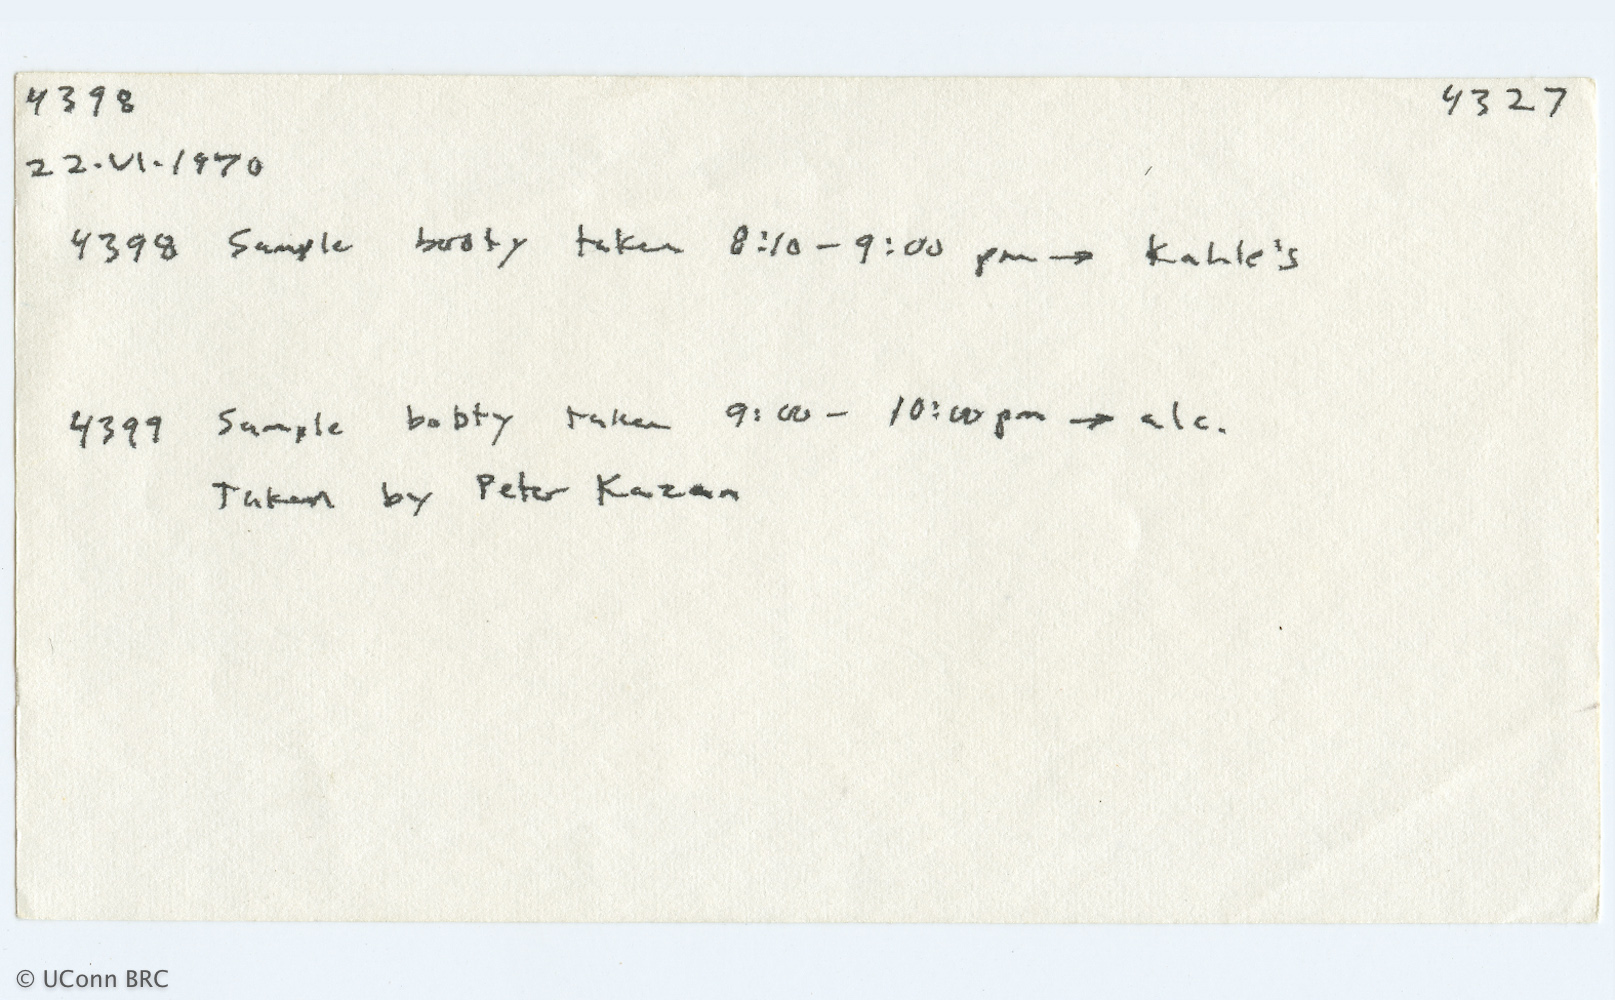 4398 4327
22.VI.1970
4398 Sample booty taken 8:10 - 9:00 pm → Kahle's
4399 Sample booty taken 9:00 - 10:00 pm → alc.
Taken by Peter Kazan
© UConn BRC